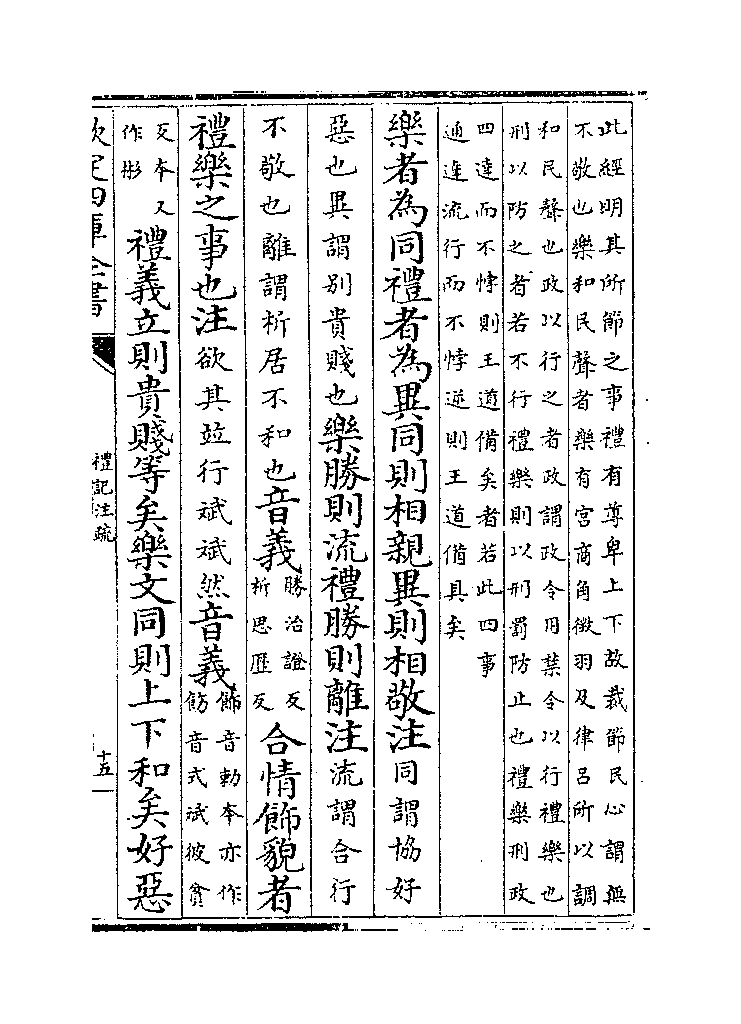 此經明其所節之事禮有尊卑上下故裁節民心謂無
不敬也樂和民聲者樂有宫商角徵羽及律呂所以調
和民聲也政以行之者政謂政令用禁令以行禮樂也
刑以防之者若不行禮樂則以刑罰防止也禮樂刑政
四達而不悖則王道備矣者若此四事
通達流行而不悖逆則王道備具矣
樂者為同禮者為異同則相親異則相敬注同謂協好
惡也異謂別貴賤也樂勝則流禮勝則離注流謂合行
不敬也離謂析居不和也音義勝治證反析思歷反合情飾貌者
禮樂之事也注欲其並行斌斌然音義飾音勅本亦作飭音式斌彼貧
反本又作彬禮義立則貴賤等矣樂文同則上下和矣好惡
欽定四庫全書
禮記注疏
十五